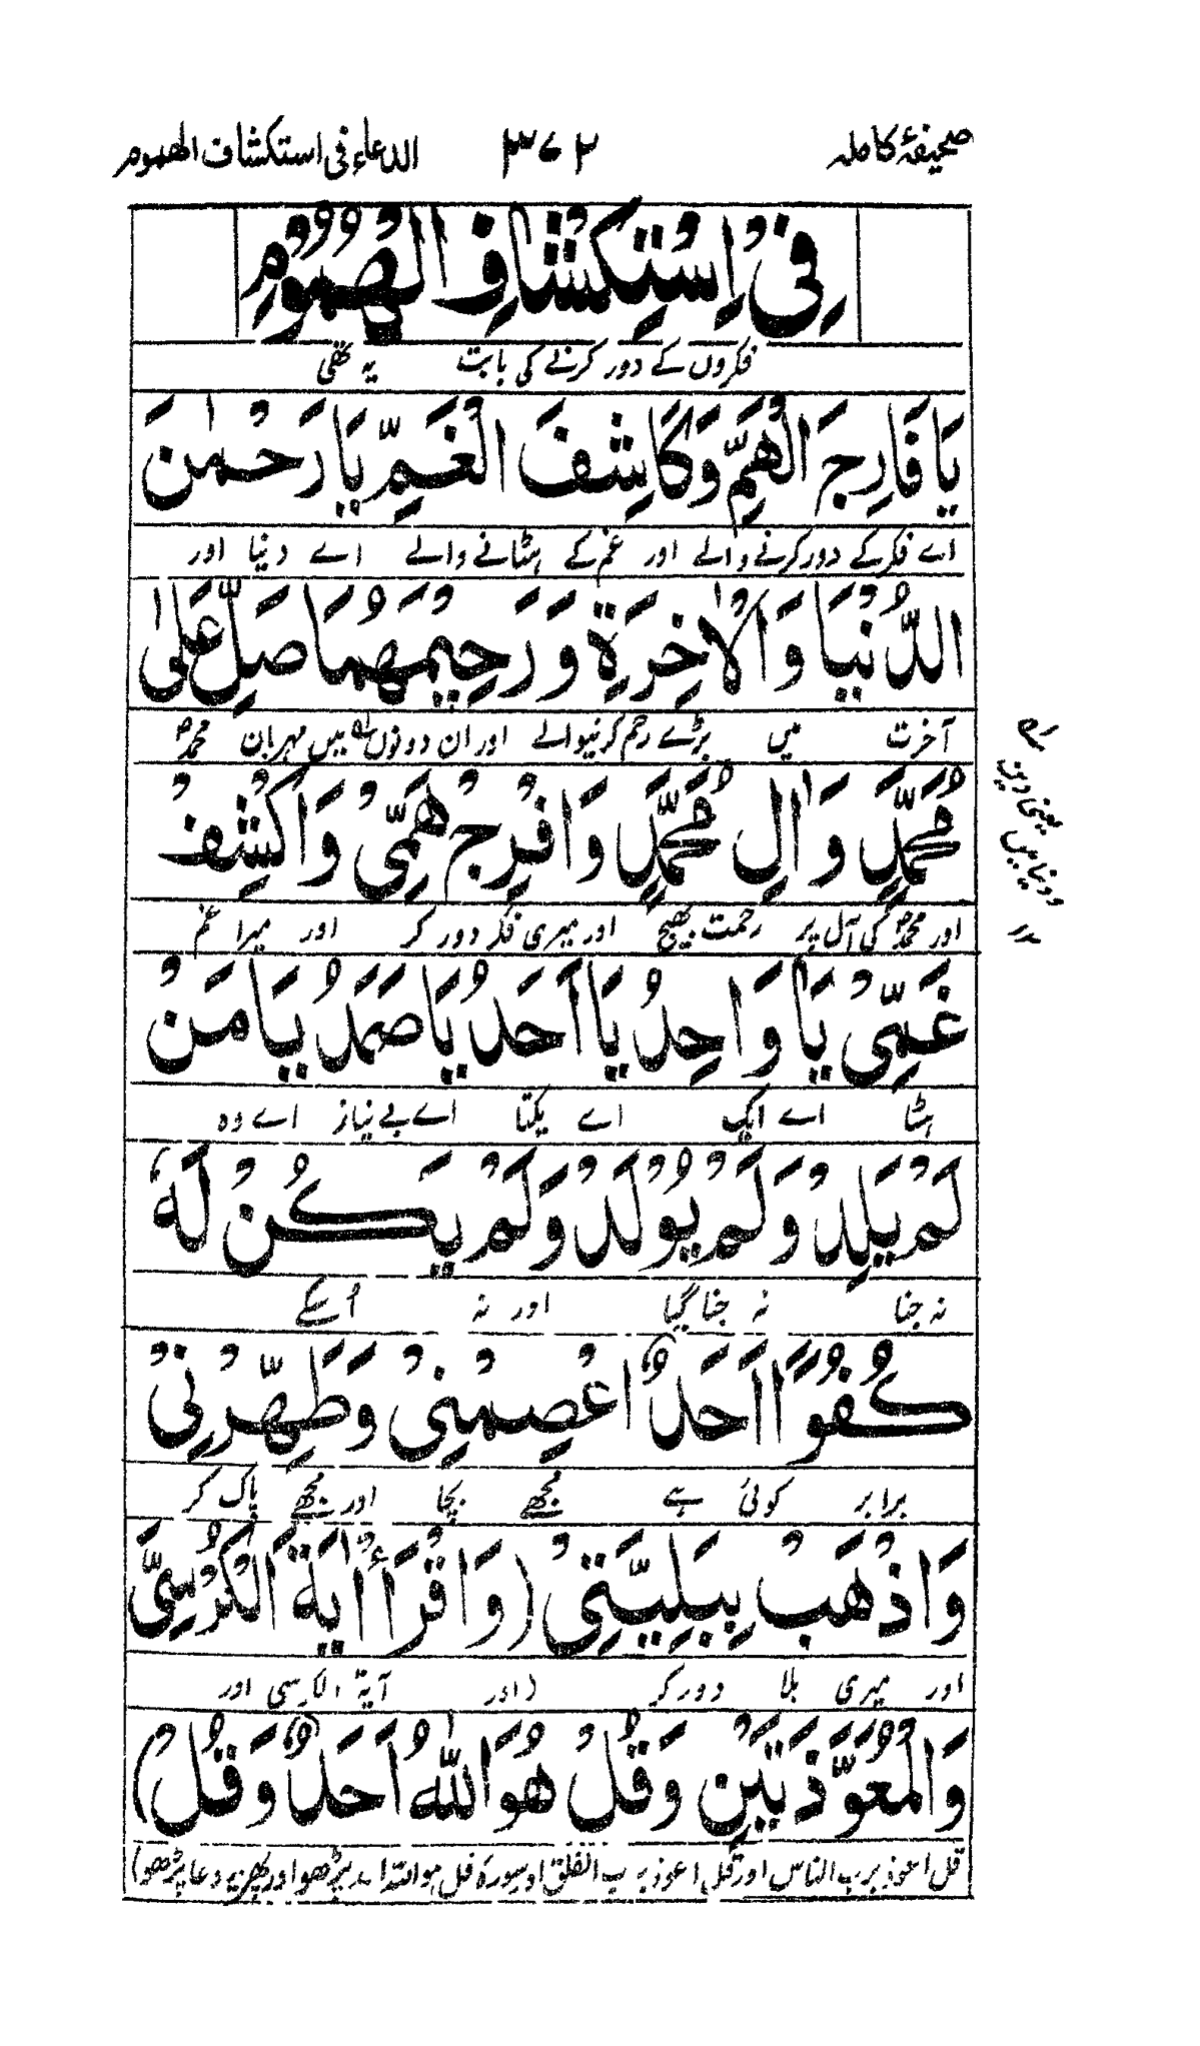 صحیفۂ کاملہ ۳۷۲ الدعاء فی استکشاف الھموم
فِیْ اِسْتِکْشَافِ الْهُمُوْمِ
فکروں کے دور کرنے کی بابت یہ تھی
یَا فَارِجَ الْهَمِّ وَ کَاشِفَ الْغَمِّ یَا رَحْمٰنَ
اے فکر کے دور کرنے والے اور غم کے ہٹانے والے اے دنیا اور
الدُّنْیَا وَ الْاٰخِرَةِ وَ رَحِیْمَهُمَا صَلِّ عَلٰی
آخرت میں بڑے رحم کرنیوالے اور ان دونوں میں مہربان محمدؐ
مُحَمَّدٍ وَ اٰلِ مُحَمَّدٍ وَ افْرِجْ هَمِّیْ وَ اکْشِفْ
اور محمدؐ کی آل پر رحمت بھیج اور میری فکر دور کر اور میرا غم
یعنی دین
و دنیا میں
غَمِّیْ یَا وَاحِدُ یَا اَحَدُ یَا صَمَدُ یَا مَنْ
ہٹا اے ایک اے یکتا اے بے نیاز اے وہ
لَمْ یَلِدْ وَ لَمْ یُوْلَدْ وَ لَمْ یَکُنْ لَهٗ
نہ جنا نہ جنا گیا اور نہ اُسکے
کُفُوًا اَحَدٌ اعْصِمْنِیْ وَ طَهِّرْنِیْ
برابر کوئی ہے مجھے بچا اور مجھے پاک کر
وَ اذْهَبْ بِبَلِیَّتِیْ (وَ اقْرَأْ اٰیَةَ الْکُرْسِیِّ
اور میری بلا دور کر (اور آیۃ الکرسی اور
وَ الْمُعَوِّذَتَیْنِ وَ قُلْ هُوَ اللّٰهُ اَحَدٌ وَ قُلْ)
قل اعوذ برب الناس اور قل اعوذ برب الفلق اور سورۃ قل ہو اللہ احد پڑھو اور پھر یہ دعا پڑھو)